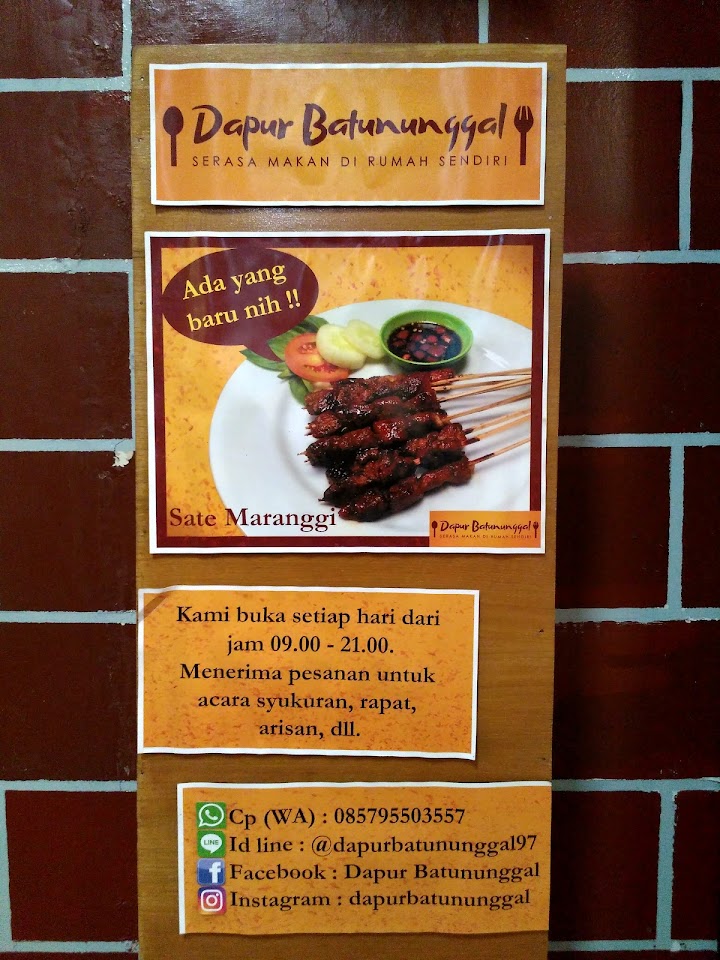 Dapur Batununggal
SERASA MAKAN DI RUMAH SENDIRI
Ada yang
baru nih !!
Sate Maranggi
Dapur Batununggal
SERASA MAKAN DI RUMAH SENDIRI
Kami buka setiap hari dari
jam 09.00 - 21.00.
Menerima pesanan untuk
acara syukuran, rapat,
arisan, dll.
Cp (WA) : 085795503557
LINE Id line : @dapurbatununggal97
f Facebook : Dapur Batununggal
Instagram : dapurbatununggal